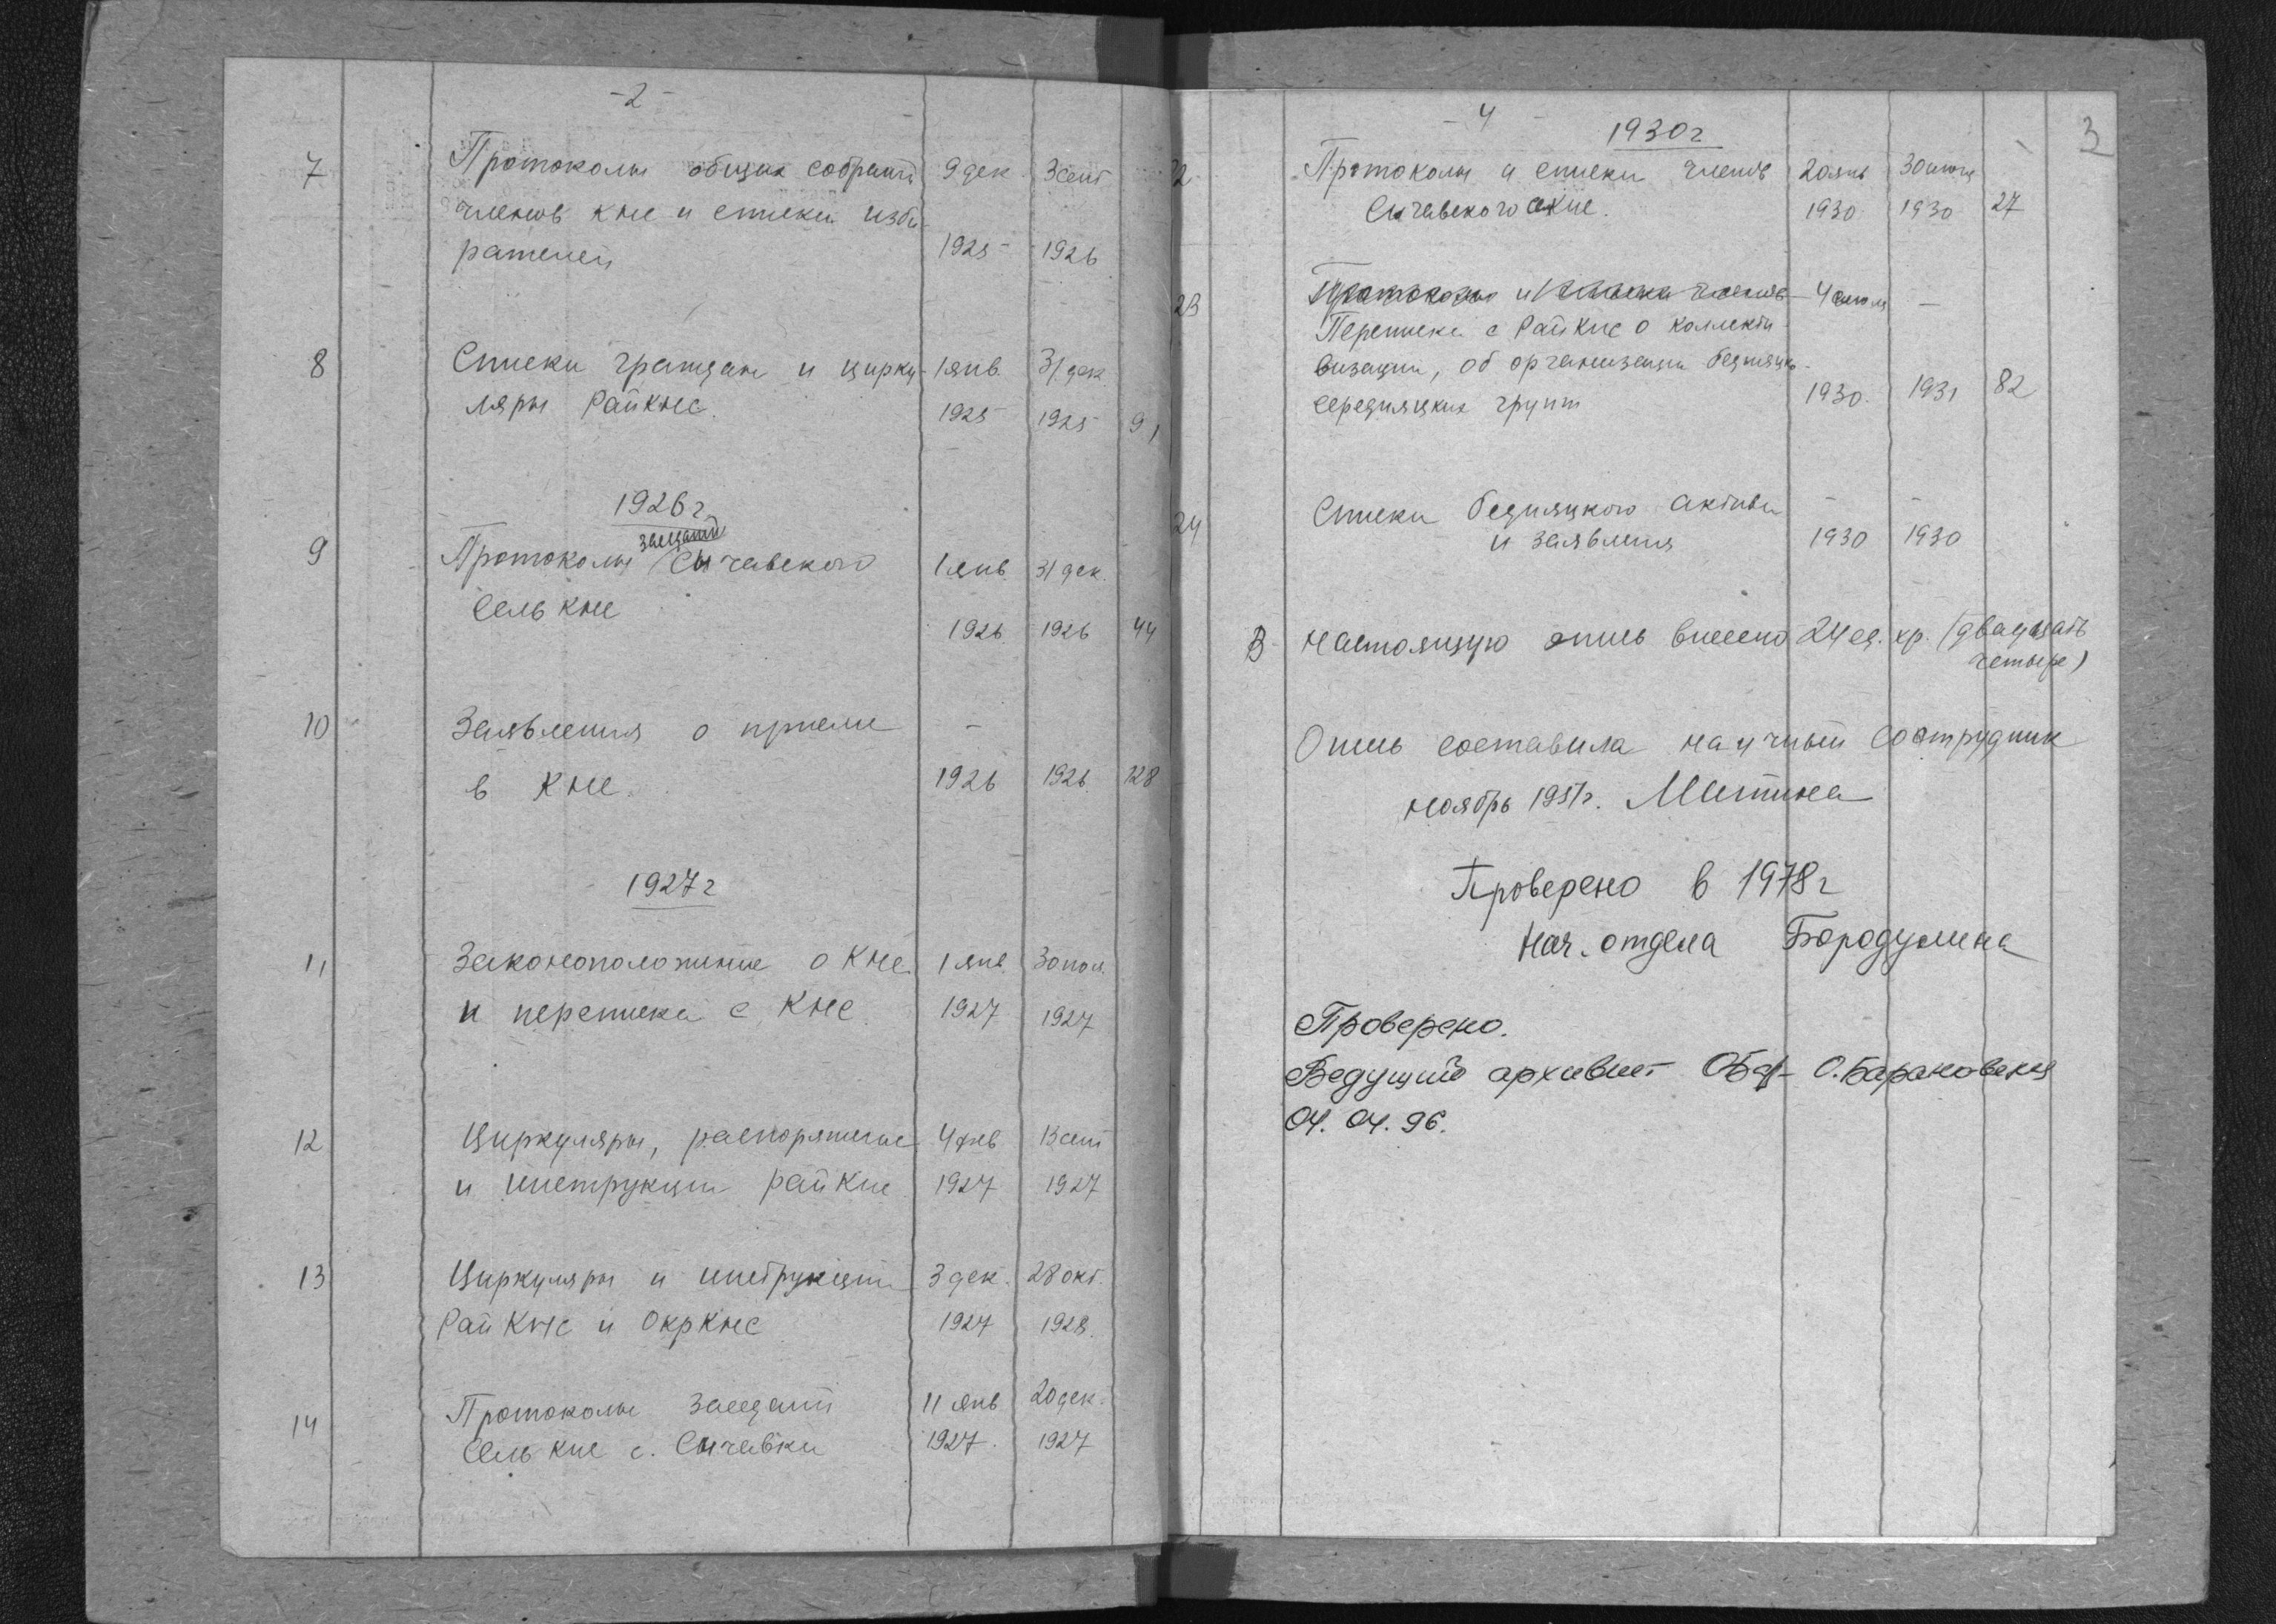 -2-
7 Протоколы общих собраний 9 дек 3 сент
членов кнс и списки изби-
рателей 1925 1926
8 Списки граждан и цирку- 1 янв. 31 дек.
ляры Райкнс. 1925 1925 91
1926 г
заседаний
9 Протоколы Сычавского 1 янв. 31 дек.
Сель кнс 1926 1926 44
10 Заявления о приеме -
в кнс. 1926 1926. 128
1927 г
11 Законоположение о Кнс 1 янв.
и переписка с Кнс 1927 1927
12 Циркуляры, распоряжение 4 янв 13 сент
и инструкции рай Кнс 1927 1927
13 Циркуляры и инструкции 3 дек. 28 окт.
Рай Кнс и ОкрКнс 1927 1928.
14 Протоколы заседаний 11 янв 20 дек.
Сель кнс с. Сычавки 1927. 1927
- 4 - 3
1930 г
22 Протоколы и списки членов 20 янв 30 июня
Сычавского скнс. 1930. 1930 27
23 Протоколы и списки членов 4 июля -
Переписка с РайКнс о коллекти-
визации, об организации бедняцко-
середняцких групп 1930. 1931 82
24 Списки бедняцкого актива - -
и заявления 1930 1930
В настоящую опись внесено 24 ед. хр. (двадцать
четыре)
Опись составила научный сотрудник
ноябрь 1951 г. Митина
Проверено в 1978 г
Нач. отдела Бородулина
Проверено.
Ведущий архивист О. Барановская
04. 04. 96.